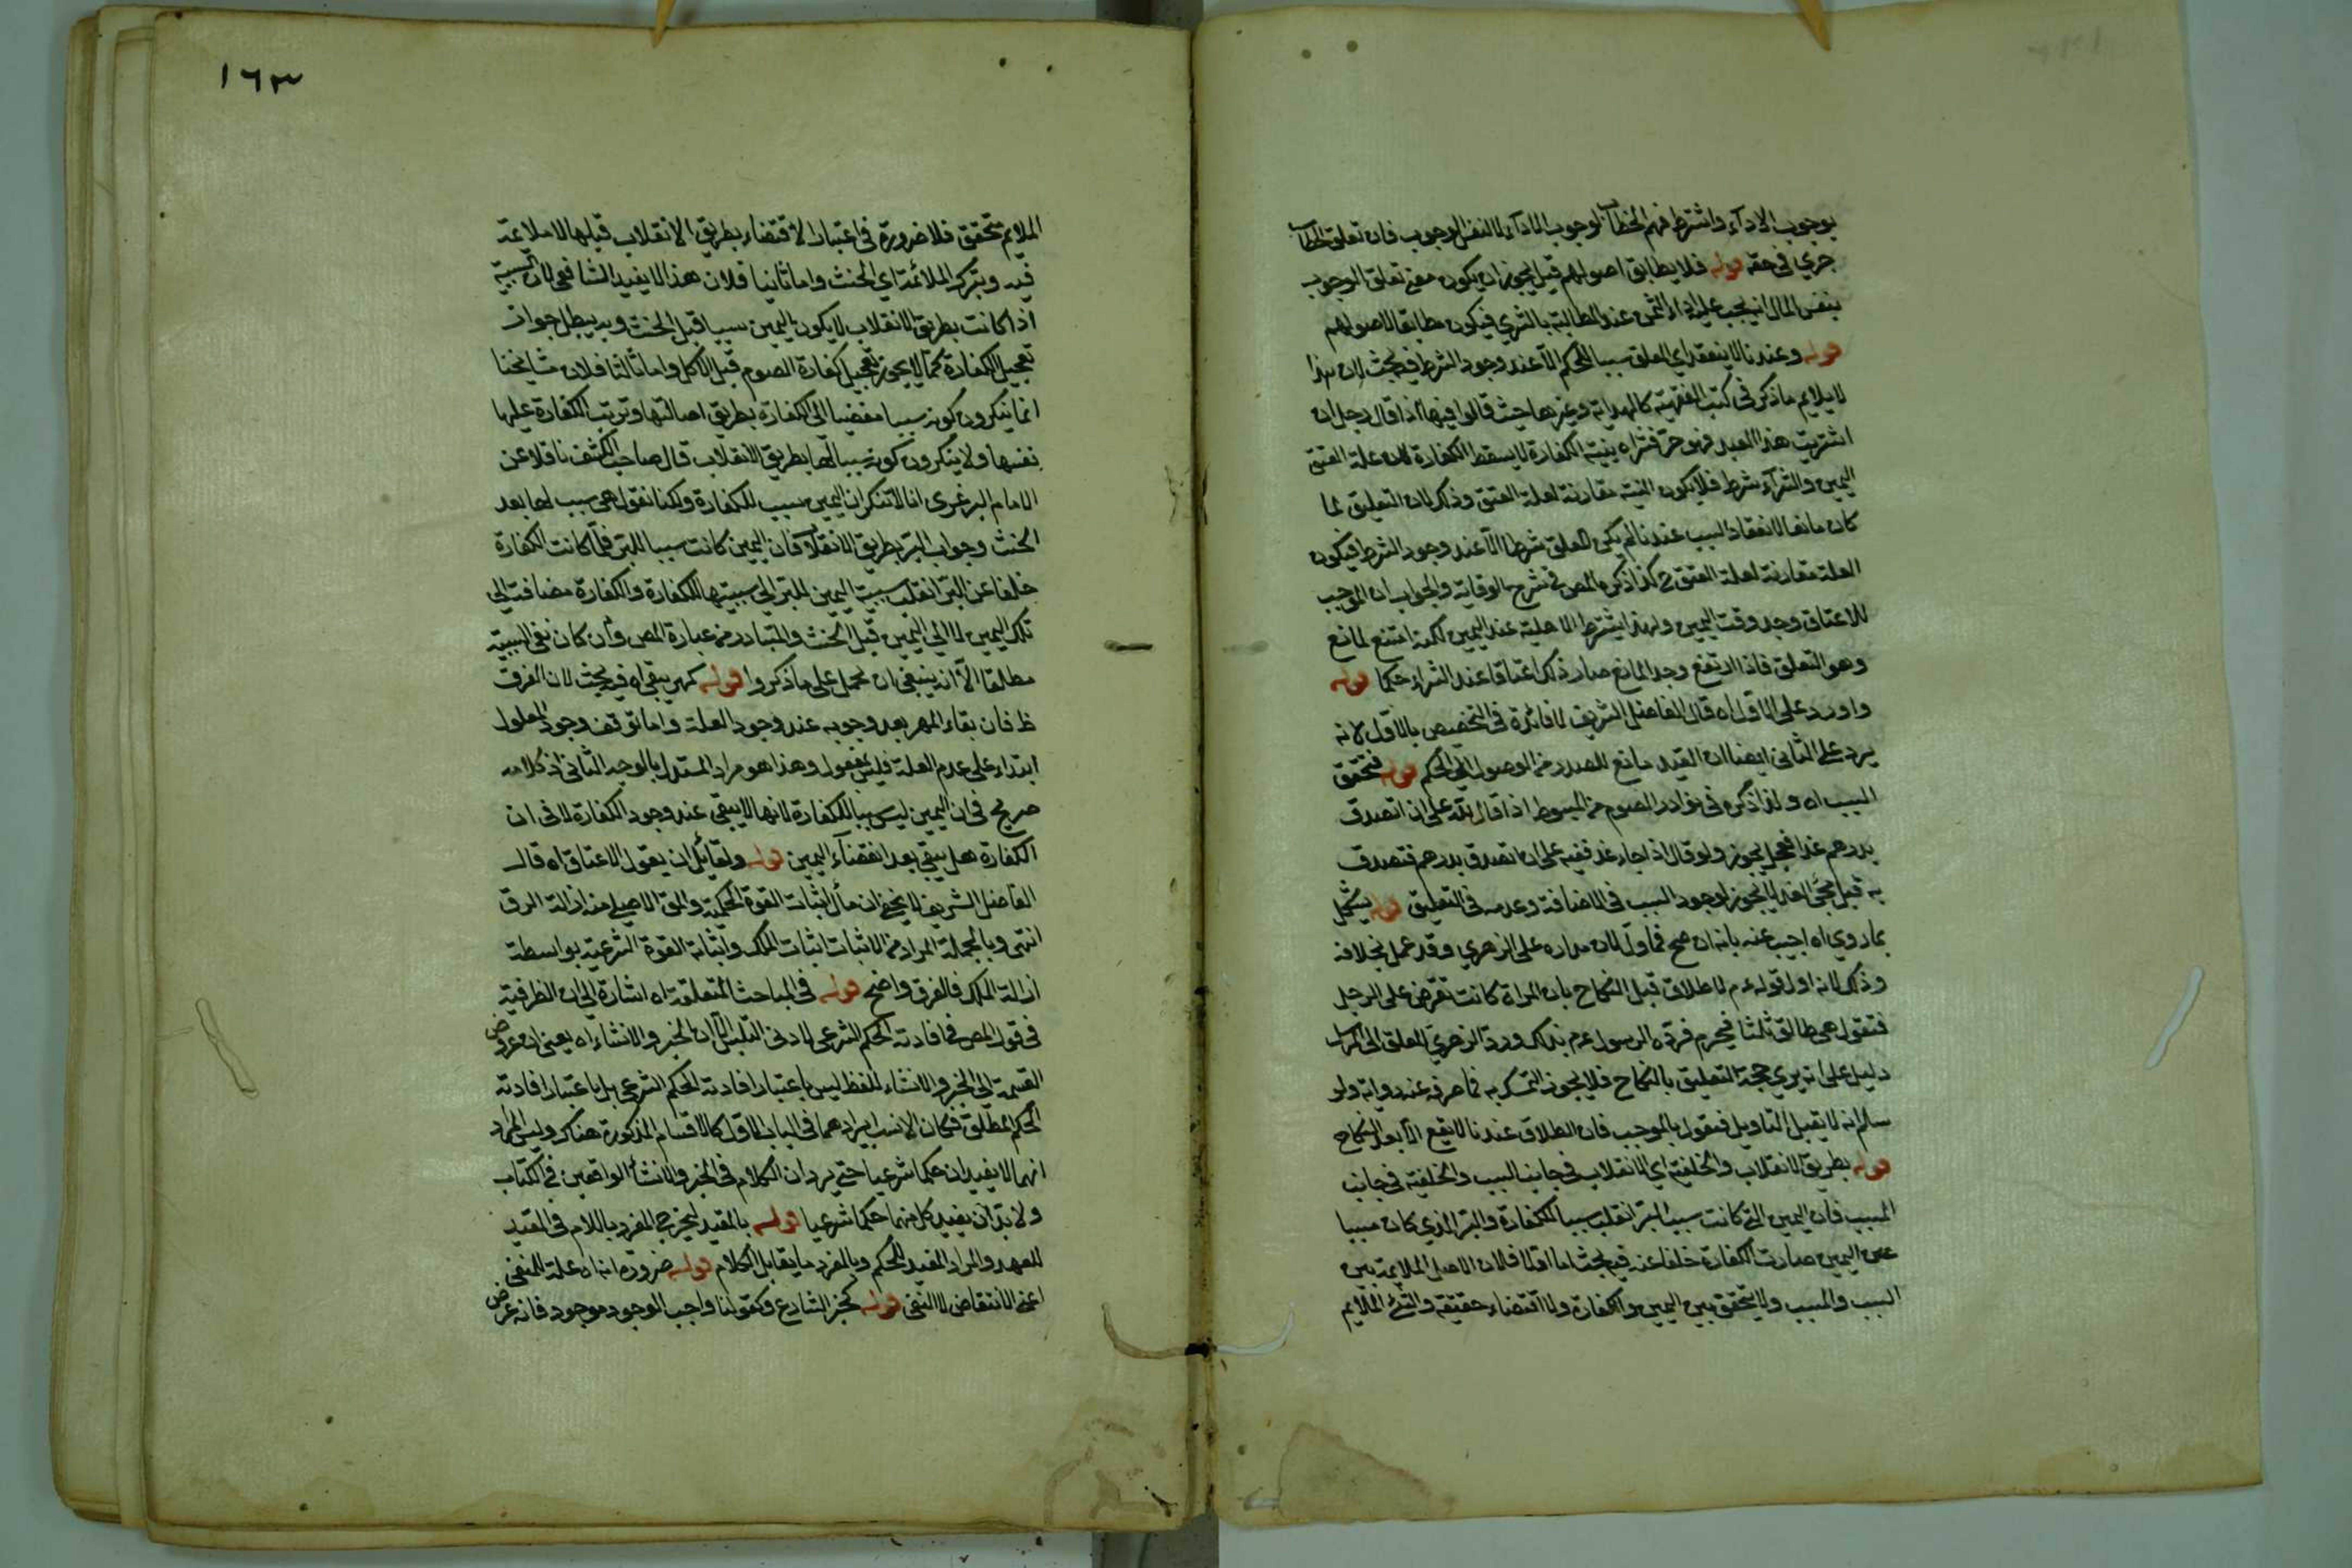 بوجوب الاداء واشترط فهم الخطاب لوجوب الاداء لا لنفس الوجوب فان تعلق الخطاب
جرى في حقه قوله فلا يطابق اصولهم قيل يجوز ان يكون معنى تعلق الوجوب
بنفس المال انه يجب عليه اداء الثمن عند المطالبة بالشرى فيكون مطابقا لاصولهم
قوله وعندنا لا ينعقد اي المعلق سببا للحكم الا عند وجود الشرط فيه بحث لان هذا
لا يلايم ما ذكر في كتب الفقهية كالهداية وغيرها حيث قالوا فيها اذا قال رجل ان
اشتريت هذا العبد فهو حر فشراه بنية الكفارة لا يسقط الكفارة لان علة العتق
اليمين والشراء شرط فلا يكون النية مقارنة لعلة العتق وذلك لان التعليق لما
كان مانعا لانعقاد السبب عندنا لم يكن المعلق شرطا الا عند وجود الشرط فيكون
العلة مقارنة لعلة العتق ح كذا ذكره المص في شرح الوقاية والجواب ان الموجب
للاعتاق وجد وقت اليمين ولهذا يشترط الاهلية عند اليمين لكنه امتنع لمانع
وهو التعلق فاذا ارتفع وجد المانع صار ذلك اعتاقا عند الشراء حكما قوله
واورد على الاول اه قال الفاضل الشريف لا فائدة في التخصيص بالاول لانه
يرد على الثاني ايضا ان القيد مانع للصدر من الوصول الى الحكم قوله فتحقق
السبب اه ولذا ذكر في نوادر الصوم من المبسوط اذا قال لله على ان اتصدق
بدرهم غدا فعجل يجوز ولو قال اذا جاء غد فلله على ان اتصدق بدرهم فتصدق
به قبل مجئ الغد لا يجوز لوجود السبب في الاضافة وعدمه في التعليق قوله يشكل
بما روى اه اجيب عنه بانه ان صح فماول لان مداره على الزهري وقد عمل بخلافه
وذلك لانه اول قوله عم لا طلاق قبل النكاح بان المراة كانت تعرض على الرجل
فتقول هي طالق ثلثا فيحرم فرده الرسول عم بذلك ورد الزهري المعلق الى المراسل
دليل على انه يرى صحة التعليق بالنكاح فلا يجوز التمسك به فما عرف عند رواته ولو
سلم انه لا يقبل التاويل فنقول بالموجب فان الطلاق عندنا لا يقع الا بعد النكاح
قوله بطريق الانقلاب والخلفية اي الانقلاب في جانب السبب والخلفية في جانب
المسبب فان اليمين التي كانت سببا للبر انقلب سببا للكفارة والبر الذي كان مسببا
عن اليمين صارت الكفارة خلفا عنه فيه بحث اما اولا فلان الاصل الملايمة بين
السبب والمسبب ولا يتحقق بين اليمين والكفارة ولا اقتضاء حقيقة والشئ الملايم
١٦٣
الملايم متحقق فلا ضرورة في اعتبار الاقتضاء بطريق الانقلاب قبلها لا ملائمة
فيه وبترك الملائمة اي الحنث واما ثانيا فلان هذا لا يفيد الشافعي لان السببية
اذا كانت بطريق الانقلاب لا يكون اليمين سببا قبل الحنث وبه يبطل جواز
تعجيل الكفارة كما لا يجوز تعجيل كفارة الصوم قبل الاكل واما ثالثا فلان مشايخنا
انما ينكرون كونه سببا مفضيا الى الكفارة بطريق اصالتها وترتب الكفارة عليها
نفسها ولا ينكرون كونه سببا لها بطريق الانقلاب قال صاحب الكشف ناقلا عن
الامام البرغرى انا لا ننكر ان اليمين سبب للكفارة ولكنا نقول هي سبب لها بعد
الحنث وجواب البر بطريق الانقلاب فان اليمين كانت سببا للبر فلما كانت الكفارة
خلفا عن البر انقلب سببية اليمين للبر الى سببيتها للكفارة والكفارة مضافة الى
تلك اليمين لا الى اليمين قبل الحنث والمتبادر من عبارة المص وان كان نفى السببية
مطلقا الا انه ينبغي ان يحمل على ما ذكروا قوله كمهر يبقى اه فيه بحث لان الفرق
ظ فان بقاء المهر بعد وجوبه عند وجود العلة واما توقف وجود المعلول
ابتداء على عدم العلة فليس بمعقول وهذا هو مراد المستدل بالوجه الثاني اذ كلامه
صريح في ان اليمين ليس سببا للكفارة لانها لا يبقى عند وجود الكفارة لا في ان
الكفارة هل يبقى بعد انقضاء اليمين قوله ولقائل ان يقول الاعتاق اه قال
الفاضل الشريف لا يخفى ان مأل اثبات القوة الحكمية والمق الاصلي منه ازالة الرق
انتهى وبالجملة المراد من الاثبات اثبات الملك واثباته القوة الشرعية بواسطة
ازالة الملك فالفرق واضح قوله في المباحث المتعلقة اه اشارة الى ان الظرفية
في قول المص في افادته الحكم الشرعي لادنى التلبس لان الخبر والانشاء اه يعنى ان عروض
القسمة الى الخبر والانشاء للفظ ليس باعتبار افادته الحكم الشرعي بل باعتبار افادته
الحكم المطلق فكان الانسب ايرادهما في الباب الاول كالاقسام المذكورة هناك وليس المراد
انهما لا يفيدان حكما شرعيا حتى يرد ان الكلام في الخبر والانشأ الواقعين في الكتاب
ولا بد ان يفيد كل منهما حكما شرعيا قوله بالمقيد ليخرج المفرد باللام في المقيد
للعهد والمراد المقيد للحكم وبالمفرد ما يقابل الكلام قوله ضرورة انه اه علة للمنفى
اعنى الانتقاض لا النفي قوله كخبر الشارع وكقولنا واجب الوجود موجود فانه عرض